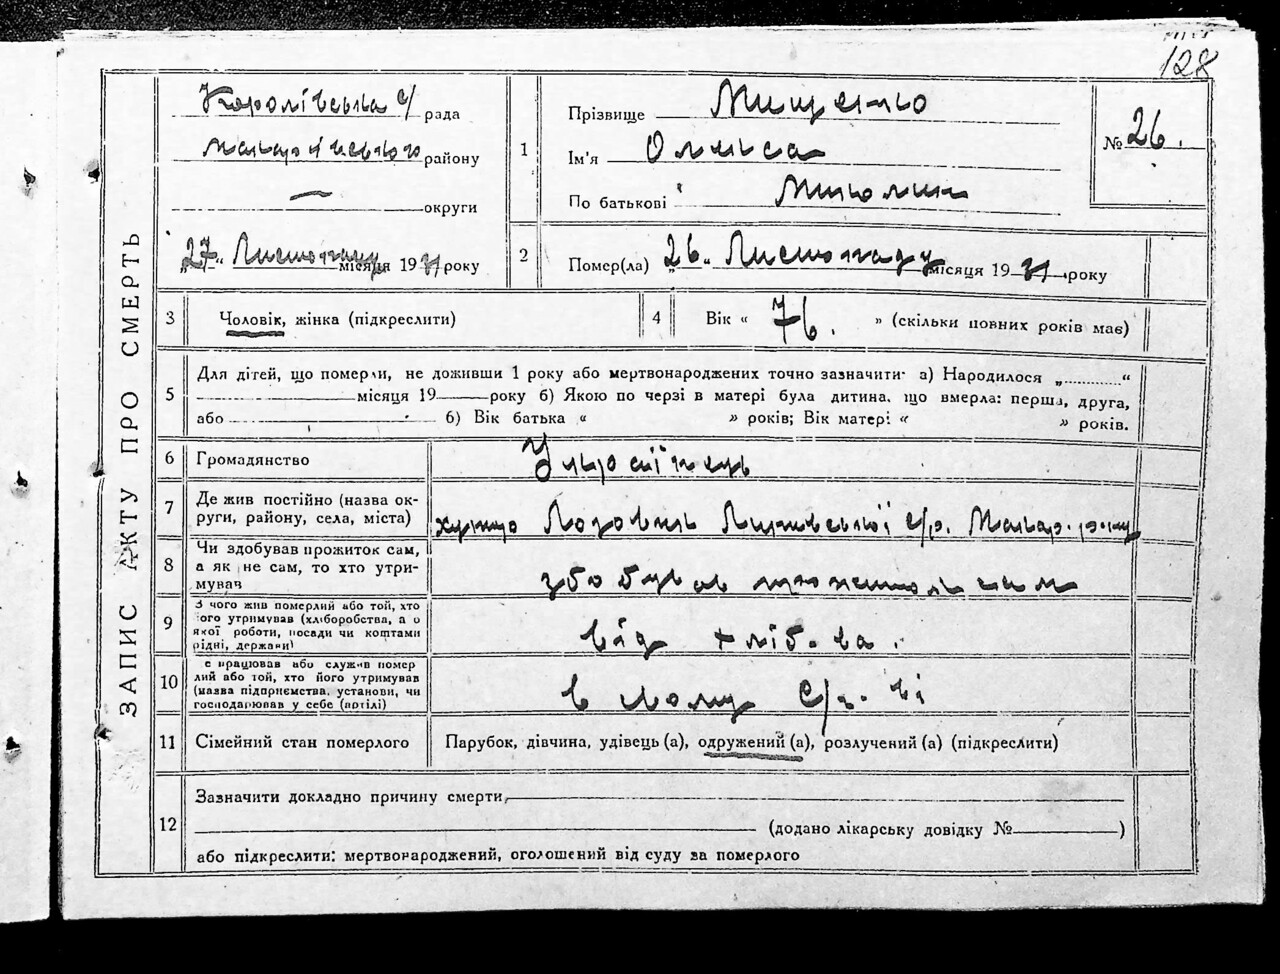 128
ЗАПИС АКТУ ПРО СМЕРТЬ
Королівська с/ рада
району
округи
„27“ Листопаду місяця 1931 року
1
Прізвище Мищенко
Ім'я Олекса
По батькові Миколин
№ 26.
2
Помер(ла) „26“ Листопаду місяця 1931 року
3
Чоловік, жінка (підкреслити)
4
Вік « 76. » (скільки повних років має)
5
Для дітей, що померли, не доживши 1 року або мертвонароджених точно зазначити: а) Народилося „............“
місяця 19 року б) Якою по черзі в матері була дитина, що вмерла: перша, друга,
або б) Вік батька « » років; Вік матері « » років.
6
Громадянство
Українець
7
Де жив постійно (назва ок-
руги, району, села, міста)
с/р. Макар. р-ну
8
Чи здобував прожиток сам,
а як не сам, то хто утри-
мував
здобував
9
З чого жив померлий або той, хто
його утримував (хліборобства, а о
якої роботи, посади чи коштами
рідні, держави)
від хліб-ва.
10
е працював або служив помер
лий або той, хто його утримував
(назва підприємства, установи, чи
господарював у себе (артілі)
в с/г-ві
11
Сімейний стан померлого
Парубок, дівчина, удівець (а), одружений (а), розлучений (а) (підкреслити)
12
Зазначити докладно причину смерти,
(додано лікарську довідку № )
або підкреслити: мертвонароджений, оголошений від суду за померлого